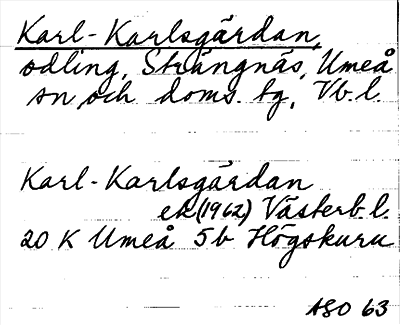 Karl-Karlsgärdan,
odling, Strängnäs, Umeå
sn och doms. tg, Vb.l.
Karl-Karlsgärdan
ek (1962) Västerb.l.
20 K Umeå 5b Högskuru
ASO 63